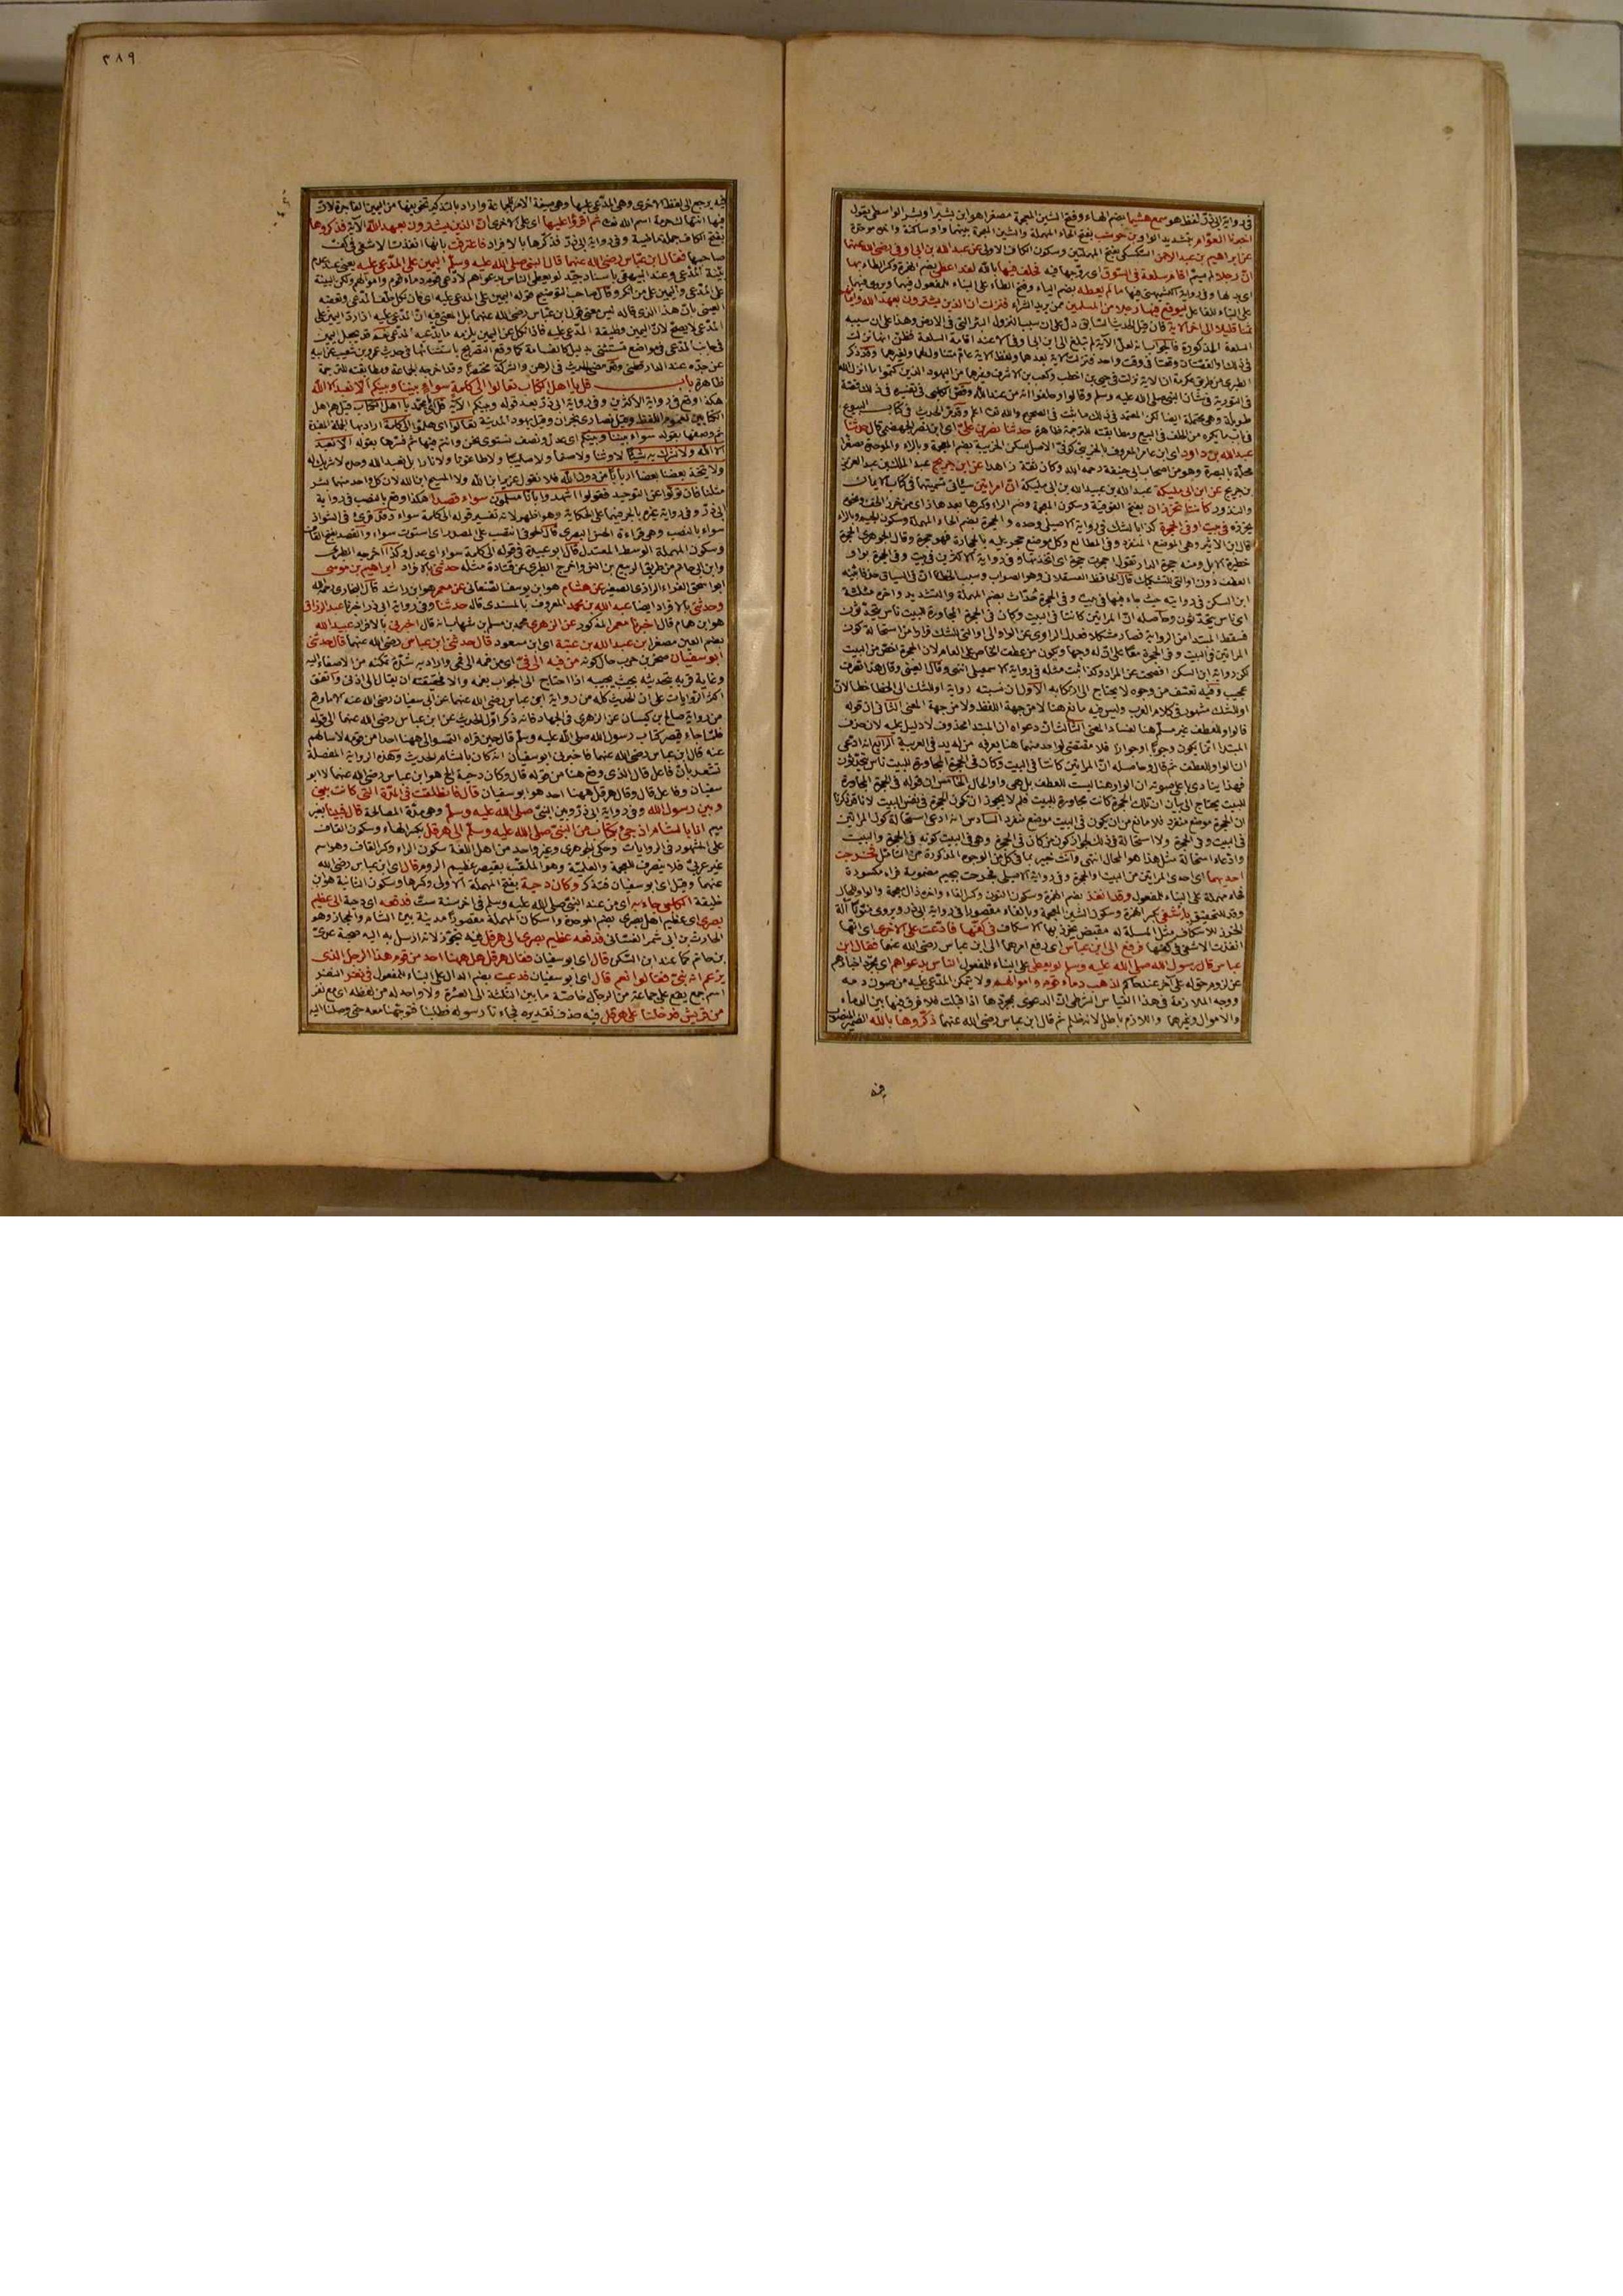 في رواية ابي ذر لفظ هو سمع هشيما بضم الهاء وفتح الشين المعجمة مصغرا هو ابن بشير او بشر الواسطي يقول
اخبرنا العوام بتشديد الواو بن حوشب بفتح الحاء المهملة والشين المعجمة بينهما واو ساكنة واخره موحدة
عن ابراهيم بن عبد الرحمن السكسكي بفتح المهملتين وسكون الكاف الاولى عن عبد الله بن ابي اوفى رضي الله عنهما
ان رجلا لم يسم اقام سلعة في السوق اي روجها فيه فحلف فيها بالله لقد اعطى بضم الهمزة وكسر الطاء بها
اي بدلها وفي رواية الكشميهني فيها ما لم يعطه بضم الياء وفتح الطاء على البناء للمفعول فيهما ويروى فيهما
على البناء للفاعل ليوقع فيها رجلا من المسلمين ممن يريد الشراء فنزلت ان الذين يشترون بعهد الله وايمانهم
ثمنا قليلا الى اخر الاية فان قيل الحديث السابق دل على ان سبب النزول البئر التي في الارض وهذا على ان سببه
السلعة المذكورة فالجواب انه لعل الآية لم تبلغ الى ابن ابي اوفى الا عند اقامة السلعة فظن انها نزلت
في ذلك او القضيتان وقعتا في وقت واحد فنزلت الاية بعدهما ولفظ الاية عام متناول لهما ولغيرهما وقد ذكر
الطبري من طريق عكرمة ان الاية نزلت في حيي بن اخطب وكعب بن الاشرف وغيرهما من اليهود الذين كتموا ما انزل الله
في التورية في شان النبي صلى الله عليه وسلم وقالوا وحلفوا انه من عند الله وقص الكلبي في تفسيره في ذلك قصة
طويلة وهي محتملة ايضا لكن المعتمد في ذلك ما ثبت في الصحيح والله تعالى اعلم وقد مر الحديث في كتاب البيوع
في باب ما يكره من الحلف في البيع ومطابقته للترجمة ظاهرة حدثنا نصر بن علي اي ابن نصر الجهضمي قال حدثنا
عبد الله بن داود اي ابن عامر المعروف بالخريبي كوفي الاصل سكن الخريبة بضم المعجمة وبالراء والموحدة مصغرا
محلة بالبصرة وهو من اصحاب ابي حنيفة رحمه الله وكان ثقة زاهدا عن ابن جريج عبد الملك بن عبد العزيز
بن جريج عن ابن ابي مليكة عبد الله بن عبيد الله بن ابي مليكة ان امراتين سياتي تسميتهما في كتاب الايمان
والنذور كانتا تخرزان بفتح الفوقية وسكون المعجمة وضم الراء وكسرها بعدها زاي من خرز الخف ونحوه
يخرزه في بيت او في الحجرة كذا بالشك في رواية الاصيلي وحده والحجرة بضم الحاء المهملة وسكون الجيم وبالراء
قال ابن الاثير وهي الموضع المنفرد وفي المطالع وكل موضع حجر عليه بالحجارة فهو حجرة وقال الجوهري الحجرة
حظيرة الابل ومنه حجرة الدار تقول احتجرت حجرة اي اتخذتها وفي رواية الاكثرين في بيت وفي الحجرة بواو
العطف دون او التي للتشكيك قال الحافظ العسقلاني وهو الصواب وسبب الخطأ ان في السياق حذفا بينه
ابن السكن في روايته حيث جاء فيها في بيت وفي الحجرة حداث بضم المهملة والتشديد واخره مثلثة
اي ناس يتحدثون وحاصله ان المراتين كانتا في البيت وكان في الحجرة المجاورة للبيت ناس يتحدثون
فسقط المبتدا من الرواية فصار مشكلا فعدل الراوي عن الواو الى او التي للشك فرارا من استحالة كون
المراتين في البيت وفي الحجرة معا على ان له وجها ويكون من عطف الخاص على العام لان الحجرة اخص من البيت
لكن رواية ابن السكن افصحت عن المراد وكذا ثبت مثله في رواية الاسمعيلي انتهى وقال العيني وقال هنا تصرف
عجيب وفيه تعسف من وجوه لا يحتاج الى ارتكابه الاول ان نسبته رواية او للشك الى الخطا خطا لان
او للشك مشهور في كلام العرب وليس فيه مانع هنا لا من جهة اللفظ ولا من جهة المعنى الثاني ان قوله
فالواو للعطف غير مسلم هنا لفساد المعنى الثالث ان دعواه ان المبتدا محذوف لا دليل عليه لان حذف
المبتدا اما يكون وجوبا او جوازا فلا مقتضى لواحد منهما هنا يعرفه من له يد في العربية الرابع انه ادعى
ان الواو للعطف ثم قال وحاصله ان المراتين كانتا في البيت وكان في الحجرة المجاورة للبيت ناس يتحدثون
فهذا ينادي باعلى صوته ان الواو هنا ليست للعطف بل هي واو الحال الخامس ان قوله في الحجرة المجاورة
للبيت يحتاج الى بيان ان تلك الحجرة كانت مجاورة للبيت فلم لا يجوز ان تكون الحجرة في نفس البيت لانا قد ذكرنا
ان الحجرة موضع منفرد فلا مانع من ان يكون في البيت موضع منفرد السادس انه ادعى استحالة كون المراتين
في البيت وفي الحجرة ولا استحالة في ذلك لجواز كون من كان في الحجرة وهي في البيت كونه في الحجرة والبيت
وادعاء استحالة مثل هذا هو المحال انتهى وانت خبير بما في كل من الوجوه المذكورة من التامل فخرجت
احديهما اي احدى المراتين من البيت والحجرة وفي رواية الاصيلي فجرحت بجيم مضمومة فراء مكسورة
فحاء مهملة على البناء للمفعول وقد انفذ بضم الهمزة وسكون النون وكسر الفاء واخره ذال معجمة والواو للحال
وقد للتحقيق باشفى بكسر الهمزة وسكون الشين المعجمة وبالفاء مقصورا في رواية ابي ذر ويروى منونا آلة
الخرز للاسكاف مثل المسلة له مقبض يخرز بها الاسكاف في كفها فادعت على الاخرى اي انها
انفذت الاشفى في كفها فرفع الى ابن عباس اي رفع امرهما الى ابن عباس رضي الله عنهما فقال ابن
عباس قال رسول الله صلى الله عليه وسلم لو يعطى على البناء للمفعول الناس بدعواهم اي بمجرد اخبارهم
عن لزوم حق له على آخر عند حاكم لذهب دماء قوم واموالهم ولا يتمكن المدعى عليه من صون دمه
ووجه الملازمة في هذا القياس الشرطي ان الدعوى بمجردها اذا قبلت فلا فرق فيها بين الدماء
والاموال وغيرهما واللازم باطل لانه ظلم ثم قال ابن عباس رضي الله عنهما ذكروها بالله الضمير المنصوب
فيه
٣٨٩
فيه يرجع الى لفظ الاخرى وهي المدعى عليها وهي صيغة الامر للجماعة واراد بالتذكير تخويفها من اليمين الفاجرة لان
فيها انتهاك حرمة اسم الله تعالى ثم اقرؤا عليها اي على الاخرى ان الذين يشترون بعهد الله الآية فذكروها
بفتح الكاف جملة ماضية وفي رواية ابي ذر فذكرها بالافراد فاعترفت بانها انفذت الاشفى في كف
صاحبها فقال ابن عباس رضي الله عنهما قال النبي صلى الله عليه وسلم اليمين على المدعى عليه يعني عند عدم
بينة المدعي وعند البيهقي باسناد جيد لو يعطى الناس بدعواهم لادعى قوم دماء قوم واموالهم ولكن البينة
على المدعي واليمين على من انكر وقال صاحب التوضيح قوله اليمين على المدعى عليه اي فان نكل حلف المدعي وتعقبه
العيني بان هذا الذي قاله ليس معنى قول ابن عباس رضي الله عنهما بل المعنى فيه ان المدعى عليه اذا رد اليمين على
المدعي لا يصح لان اليمين وظيفة المدعى عليه فاذا نكل عن اليمين يلزمه ما يدعيه المدعي نعم قد يجعل اليمين
في جانب المدعي في مواضع تستثنى بدليل كالقسامة كما وقع التصريح باستثنائها في حديث عمرو بن شعيب عن ابيه
عن جده عند الدارقطني وقد مضى الحديث في الرهن والشركة مختصرا وقد اخرجه الجماعة ومطابقته للترجمة
ظاهرة باب قل يا اهل الكتاب تعالوا الى كلمة سواء بيننا وبينكم الا نعبد الا الله
هكذا وقع في رواية الاكثرين وفي رواية ابي ذر بعد قوله وبينكم الآية قل اي محمد يا اهل الكتاب قيل هم اهل
الكتابين لعموم اللفظ وقيل نصارى نجران وقيل يهود المدينة تعالوا اي هلموا الى كلمة اراد بها الجملة المفيدة
ثم وصفها بقوله سواء بيننا وبينكم اي عدل ونصف نستوي نحن وانتم فيها ثم فسرها بقوله الا نعبد
الا الله ولا نشرك به شيئا لا وثنا ولا صنما ولا صليبا ولا طاغوتا ولا نارا بل نعبد الله وحده لا شريك له
ولا يتخذ بعضنا بعضا اربابا من دون الله فلا نقول عزير ابن الله ولا المسيح ابن الله لان كل واحد منهما بشر
مثلنا فان تولوا عن التوحيد فقولوا اشهدوا بانا مسلمون سواء قصدا هكذا وقع بالنصب في رواية
ابي ذر وفي رواية غيره بالجر فيهما على الحكاية وهو اظهر لانه تفسير قوله الى كلمة سواء وقد قرئ في الشواذ
سواء بالنصب وهي قراءة الحسن البصري قال الحوفي انتصب على المصدر اي استوت سواء والقصد بفتح القاف
وسكون المهملة الوسط المعتدل قال ابو عبيدة في قوله الى كلمة سواء اي عدل وكذا اخرجه الطبري
وابن ابي حاتم من طريق الربيع بن انس واخرج الطبري عن قتادة مثله حدثني بالافراد ابراهيم بن موسى
ابو اسحق الفراء الرازي الصغير عن هشام هو ابن يوسف الصنعاني عن معمر هو ابن راشد قال البخاري رحمه الله
وحدثني بالافراد ايضا عبد الله بن محمد المعروف بالمسندي قال حدثنا وفي رواية ابي ذر اخبرنا عبد الرزاق
هو ابن همام قال اخبرنا معمر المذكور عن الزهري محمد بن مسلم بن شهاب انه قال اخبرني بالافراد عبيد الله
بضم العين مصغرا بن عبد الله بن عتبة اي ابن مسعود قال حدثني ابن عباس رضي الله عنهما قال حدثني
ابو سفيان صخر بن حرب حال كونه من فيه الى في اي من فمه الى فمي واراد به شدة تمكنه من الاصغاء اليه
وغاية قربه بتحديثه بحيث يجيبه اذا احتاج الى الجواب بفمه والا فحقيقته ان يقال الى اذني واتفق
اكثر الروايات على ان الحديث كله من رواية ابن عباس رضي الله عنهما عن ابي سفيان رضي الله عنه الا ما وقع
من رواية صالح بن كيسان عن الزهري في الجهاد فانه ذكر اول الحديث عن ابن عباس رضي الله عنهما الى قوله
فلما جاء قيصر كتاب رسول الله صلى الله عليه وسلم قال حين قراه التمسوا لي ههنا احدا من قومه لاسالهم
عنه قال ابن عباس رضي الله عنهما فاخبرني ابو سفيان انه كان بالشام الحديث وهذه الرواية المفصلة
تشعر بان فاعل قال الذي وقع هنا من قوله قال وكان دحية الخ هو ابن عباس رضي الله عنهما لا ابو
سفيان وفاعل قال وقال هرقل ههنا احد هو ابو سفيان قال فانطلقت في المدة التي كانت بيني
وبين رسول الله وفي رواية ابي ذر وبين النبي صلى الله عليه وسلم وهي مدة المصالحة قال فبينا بغير
ميم انا بالشام اذ جيء بكتاب من النبي صلى الله عليه وسلم الى هرقل بكسر الهاء وسكون القاف
على المشهور في الروايات وحكى الجوهري وغير واحد من اهل اللغة سكون الراء وكسر القاف وهو اسم
غير عربي فلا ينصرف للعجمة والعلمية وهو الملقب بقيصر عظيم الروم قال اي ابن عباس رضي الله
عنهما وقيل اي ابو سفيان فتذكر وكان دحية بفتح المهملة الاولى وكسرها وسكون الثانية هو ابن
خليفة الكلبي جاء به اي من عند النبي صلى الله عليه وسلم في اخر سنة ست فدفعه اي دحية الى عظيم
بصرى اي عظيم اهل بصرى بضم الموحدة واسكان المهملة مقصورا مدينة بين الشام والحجاز وهو
الحارث بن ابي شمر الغساني فدفعه عظيم بصرى الى هرقل فيه تجوز لانه ارسل به اليه صحبة عدي
بن حاتم كما عند ابن السكن قال اي ابو سفيان فقال هرقل هل ههنا احد من قوم هذا الرجل الذي
يزعم انه نبي فقالوا نعم قال اي ابو سفيان فدعيت بضم الدال على البناء للمفعول في نفر النفر
اسم جمع يقع على جماعة من الرجال خاصة ما بين الثلثة الى العشرة ولا واحد له من لفظه اي مع نفر
من قريش فدخلنا على هرقل فيه حذف تقديره فجاءنا رسوله فطلبنا فتوجهنا معه حتى وصلنا اليه